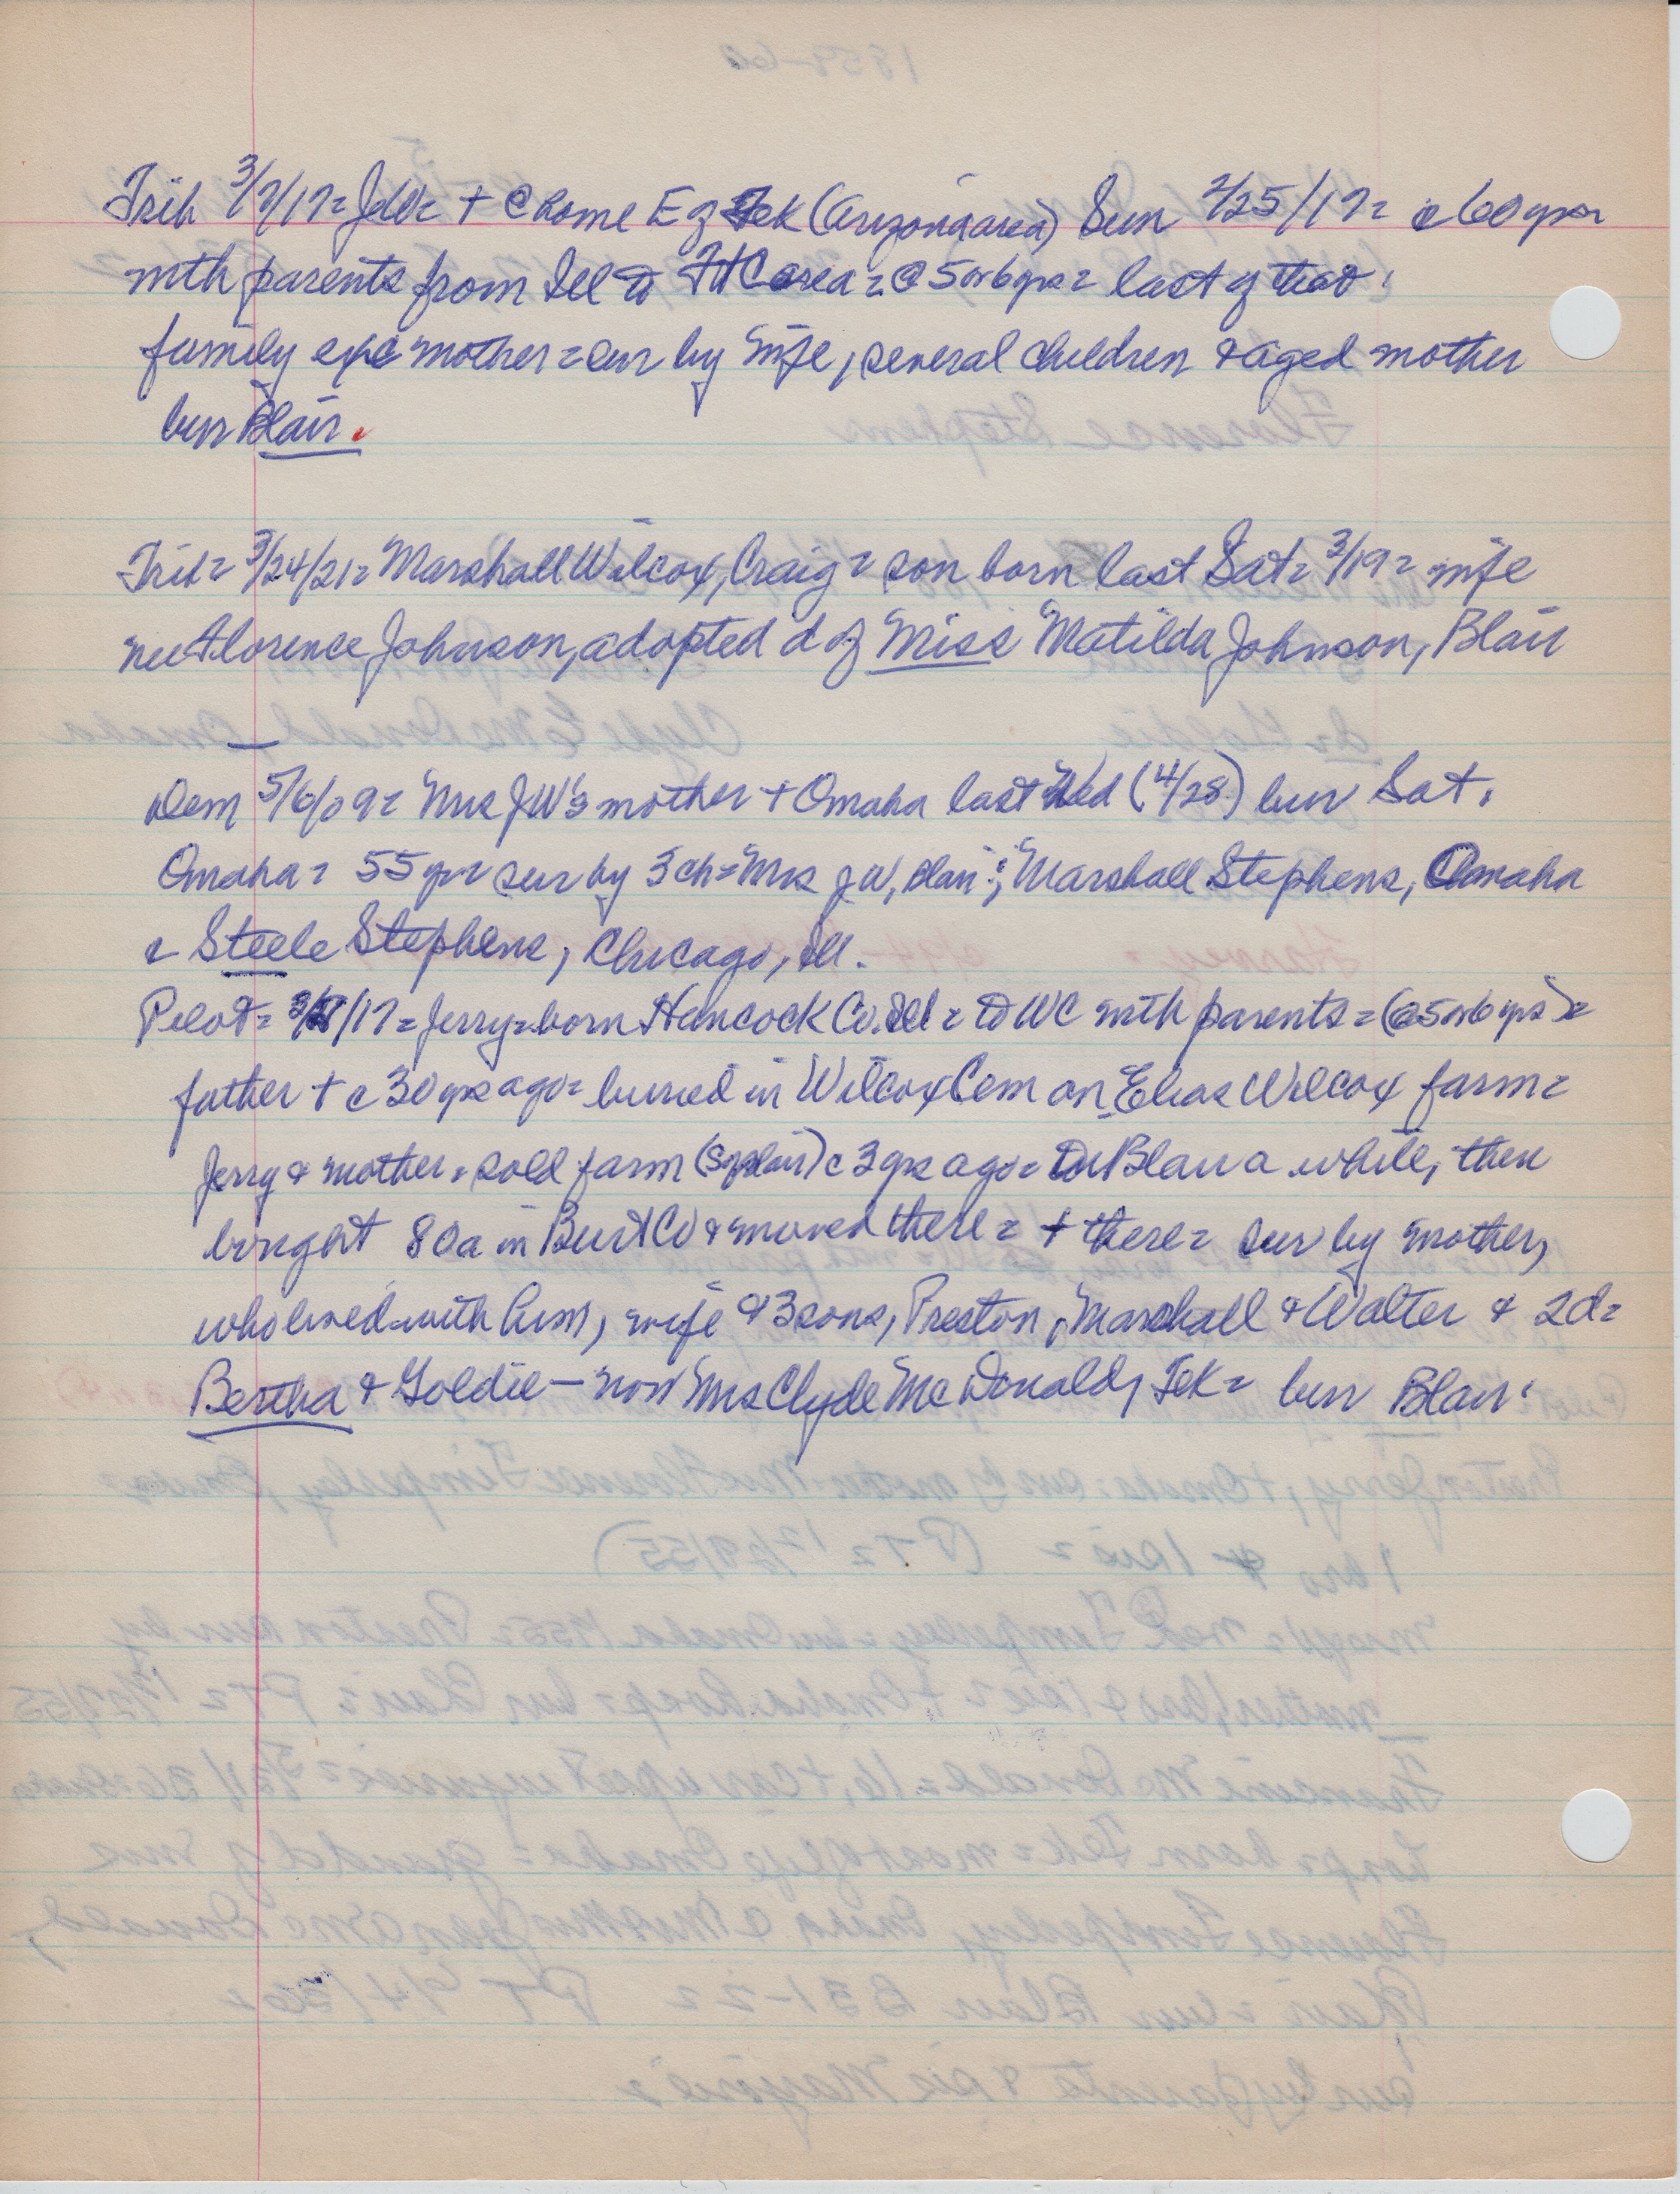 Trib 3/7/17= JW= + @ home E of Tek (Arizona area) Sun 2/25/17= c 60 yrs=
with parents from Ill to FtC area= @ 5 or 6 yrs= last of that
family exc mother= sur by wife, several children & aged mother
bur Blair.
Trib= 3/24/21= Marshall Wilcox, Craig= son born last Sat= 3/19= wife
nee Florence Johnson, adopted d of Miss Matilda Johnson, Blair
Dem 5/6/09= Mrs JW's mother + Omaha last Wed (4/28) bur Sat.
Omaha= 55 yr= sur by 3 ch= Mrs JW, Blair; Marshall Stephens, Omaha
& Steele Stephens, Chicago, Ill.
Pilot= /17= Jerry= born Hancock Co. Ill= to WC with parents= (@ 5 or 6 yrs)=
father + c 30 yrs ago= buried in Wilcox Cem on Elias Wilcox farm=
Jerry & mother sold farm c 3 yrs ago= to Blair a while, then
bought 80a in Burt Co & moved there= + there= sur by mother,
who lived with him, wife & 3 sons, Preston, Marshall & Walter & 2d=
Bertha & Goldie — now Mrs Clyde McDonald, Tek= bur Blair.